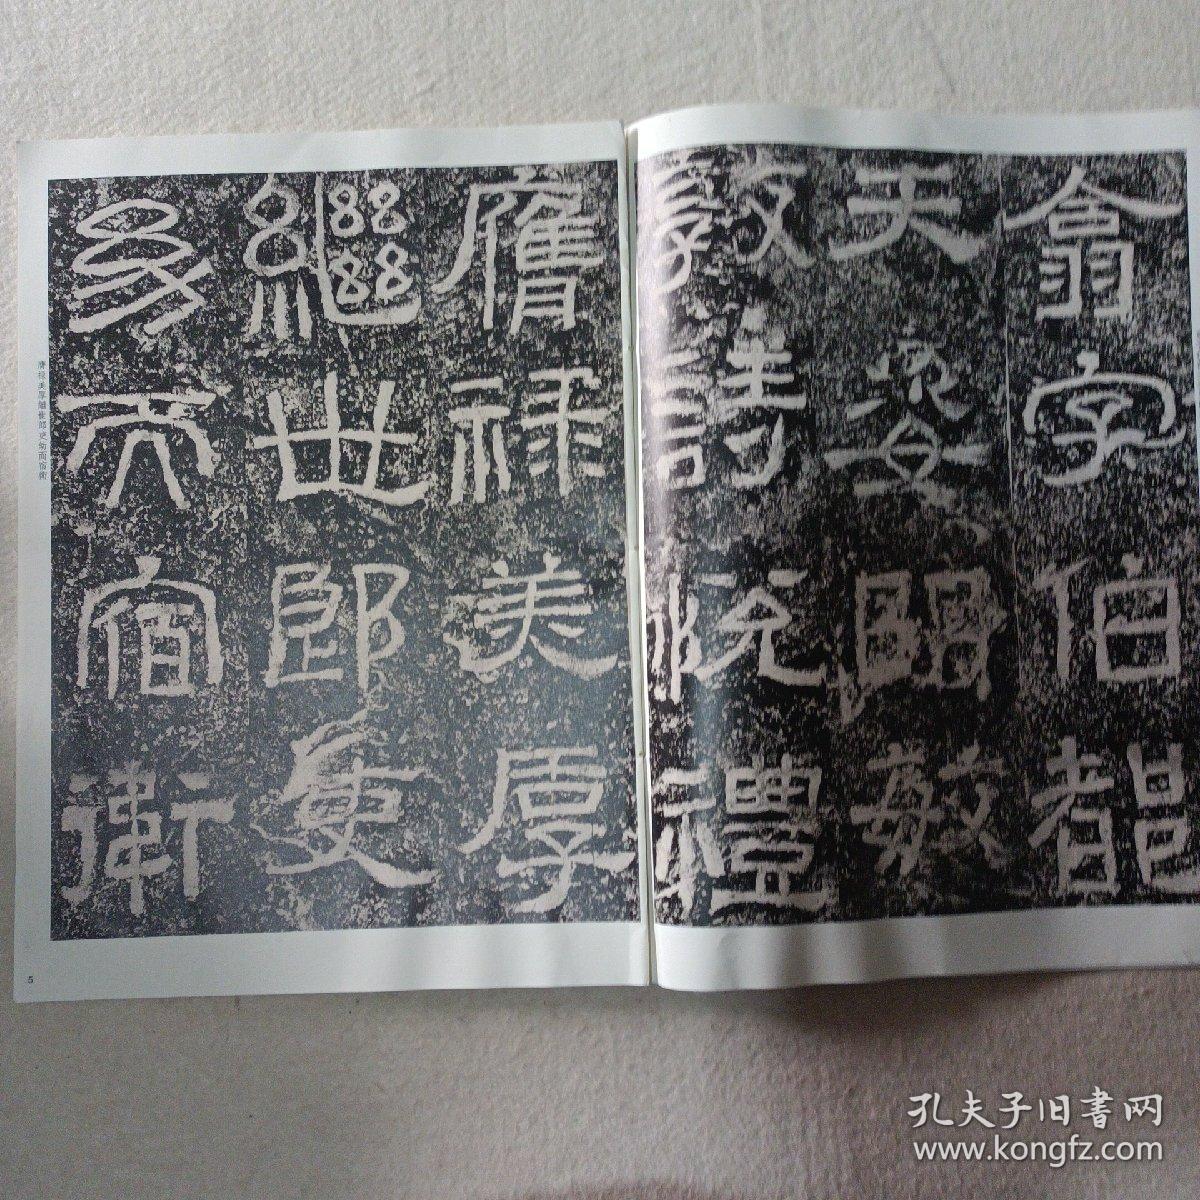 翕字伯都
天姿明敏
敦詩悅禮
膺祿美厚
繼世郎吏
幼而宿衛
膺祿美厚繼世郎吏幼而宿衛
5
孔夫子旧書网
www.kongfz.com